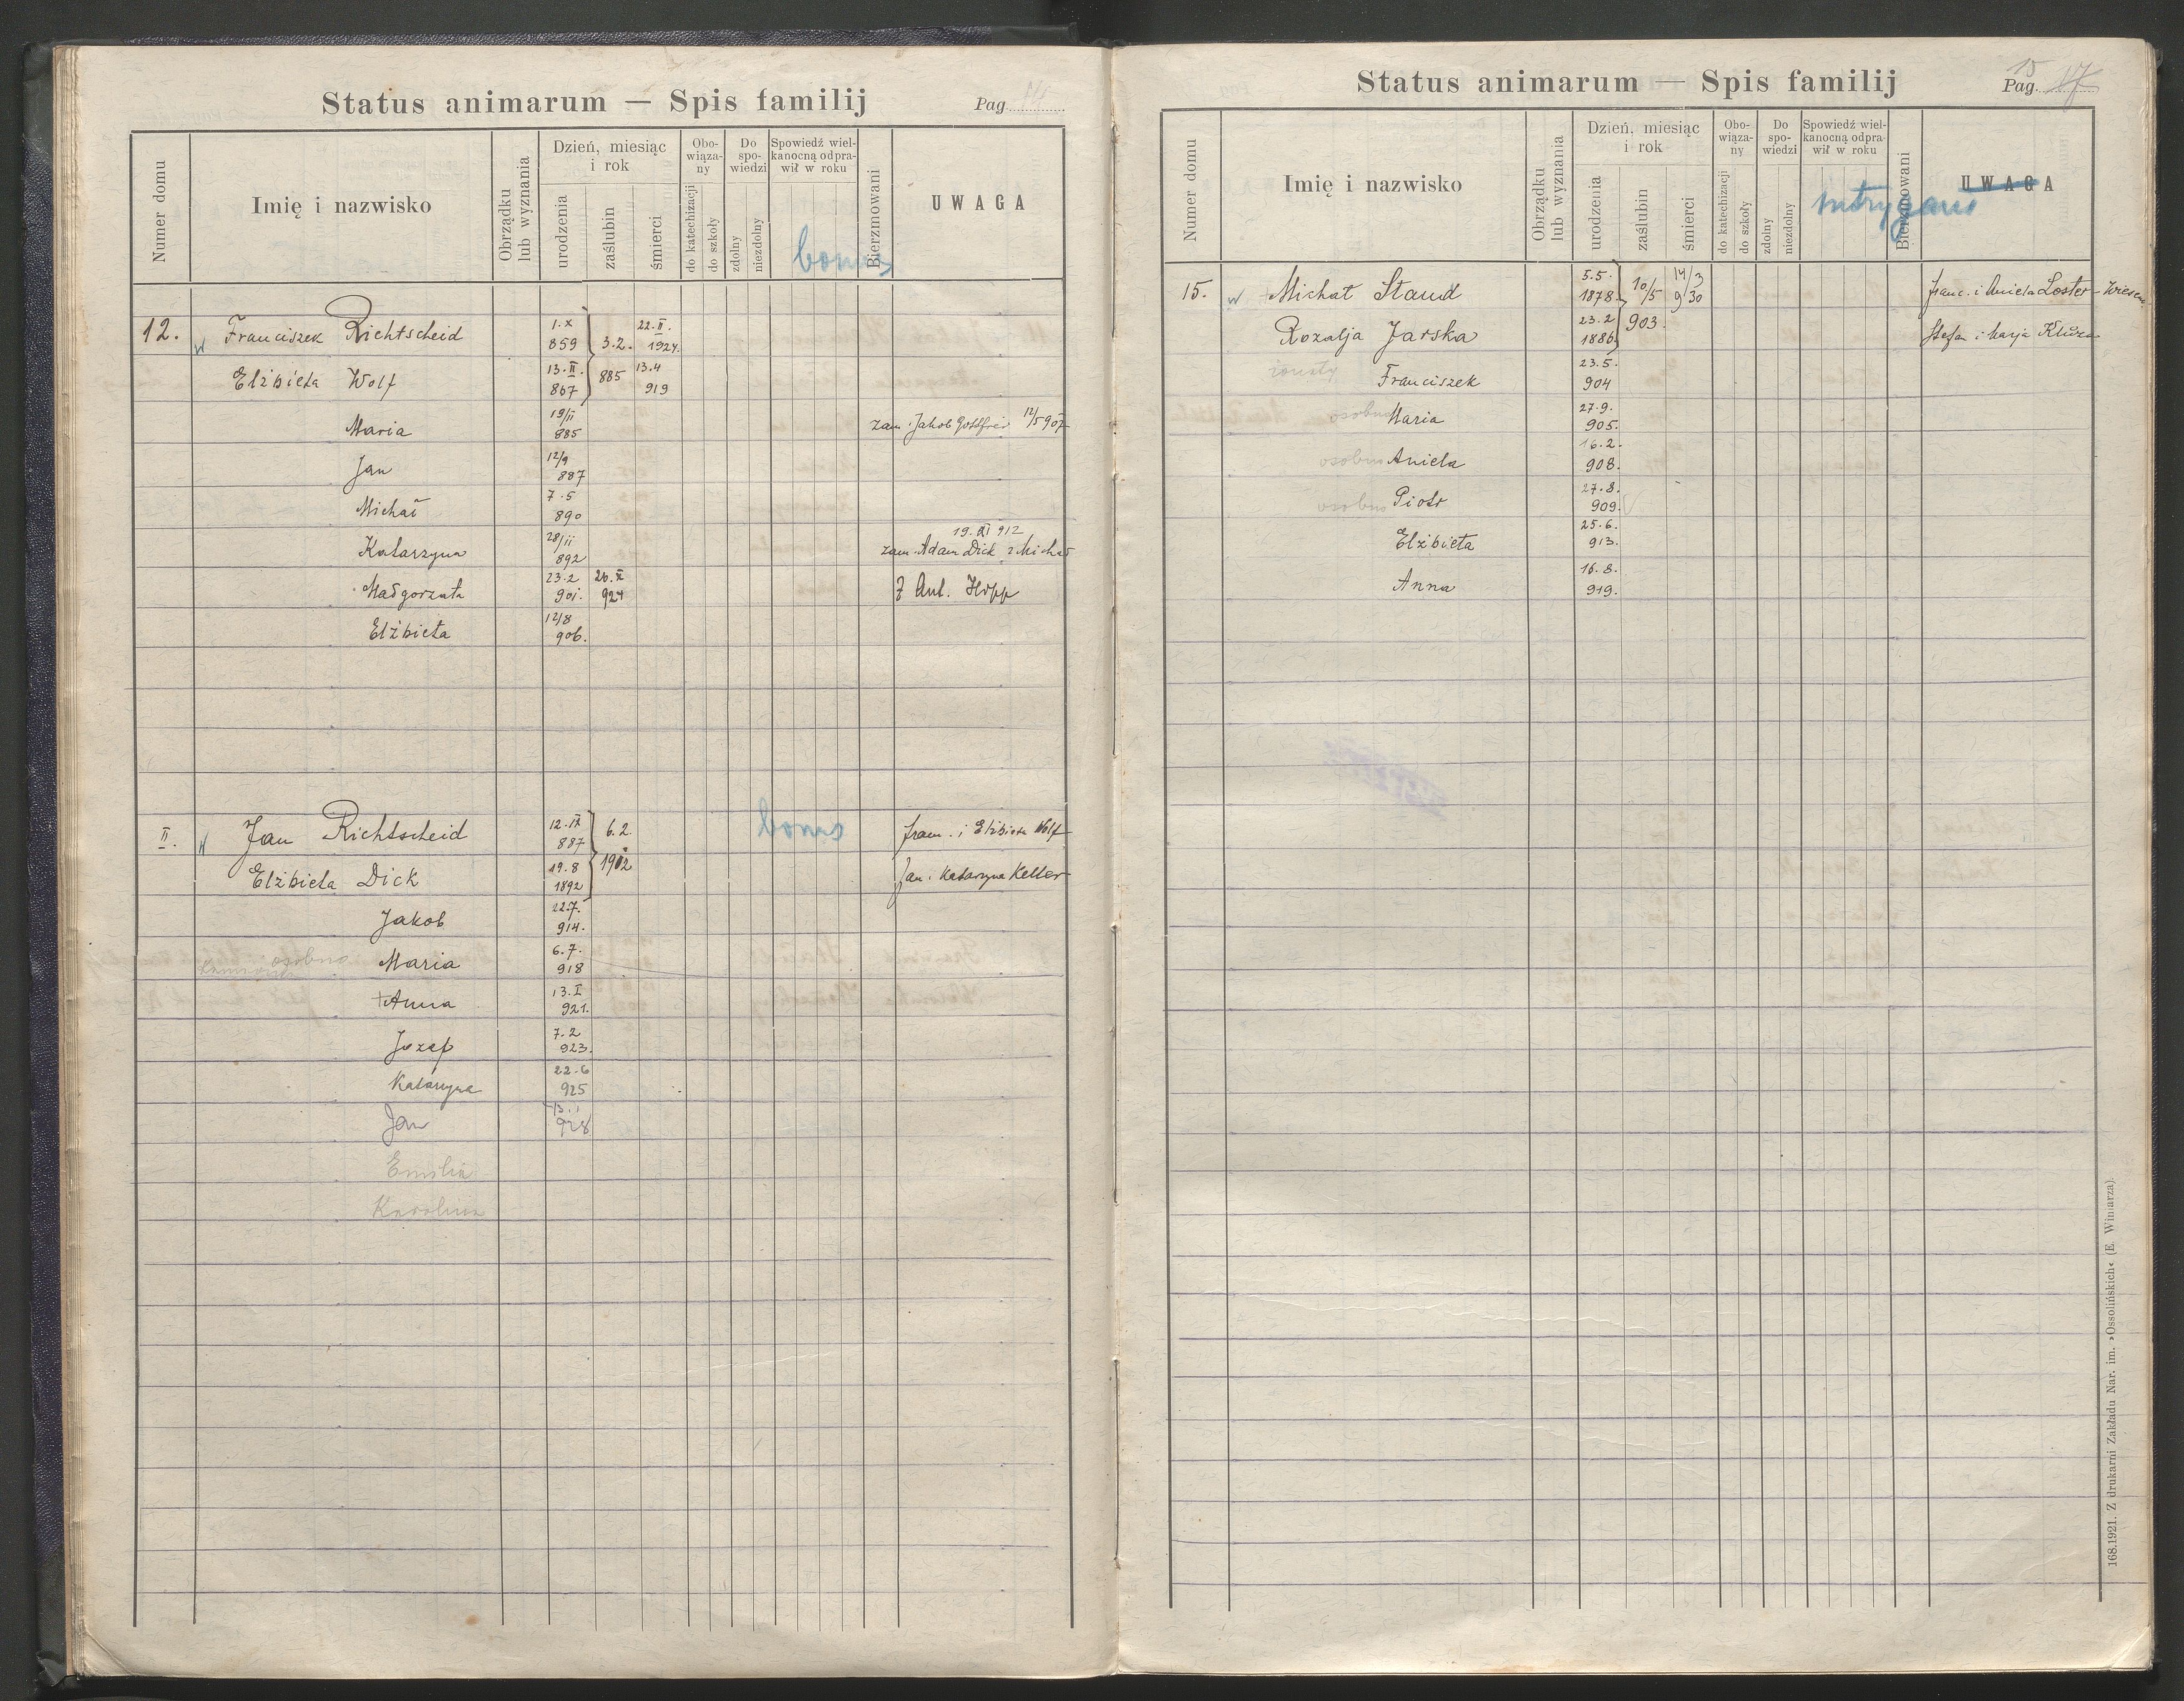 Status animarum — Spis familij
Pag.
Numer domu
Imię i nazwisko
Obrządku lub wyznania
Dzień, miesiąc i rok
urodzenia
zaślubin
śmierci
Obo-wiąza-ny
do katechizacji
do szkoły
Do spo-wiedzi
zdolny
niezdolny
Spowiedź wiel-kanocną odpra-wił w roku
Bierzmowani
UWAGA
bonus
12. Franciszek Richtscheid 1.X 859 3.2. 885 22.II. 1924.
Elżbieta Wolf 13.II. 867 13.4 919
Maria 19/II 885 zam. Jakob Gottfried 12/5 907
Jan 12/9 887
Michał 7.5 890
Katarzyna 28/11 892 19.XI 912 zam. Adam Dick z Michał
Małgorzata 23.2 901. 26.X 924 Z Ant. Hopp
Elżbieta 12/8 906.
II. Jan Richtscheid 12.IX 887 6.2. 1912 bonus Fran. i Elżbieta Wolf
Elżbieta Dick 19.8 1892 Jan i Katarzyna Keller
Jakob 22.7. 914.
osobno Maria 6.7. 918
+ Anna 13.I 921.
Jozef 7.2 923.
Katarzyna 22.6 925
Jan 928
Emilia
Karolina
Status animarum — Spis familij
Pag. 15 17
Numer domu
Imię i nazwisko
Obrządku lub wyznania
Dzień, miesiąc i rok
urodzenia
zaślubin
śmierci
Obo-wiąza-ny
do katechizacji
do szkoły
Do spo-wiedzi
zdolny
niezdolny
Spowiedź wiel-kanocną odpra-wił w roku
Bierzmowani
UWAGA
15. Michał Staud 5.5. 1878. 10/5 903. 14/3 930 Franc. i Aniela Loster
Rozalja Jarska 23.2 1886. Stefan i Marja
żonaty Franciszek 23.5. 904
osobno Maria 27.9. 905.
osobno Aniela 16.2. 908.
osobno Piotr 27.8. 909.
Elżbieta 25.6. 913.
Anna 16.8. 919.
168.1921. Z drukarni Zakładu Nar. im. »Ossolińskich« (E. Winiarza).